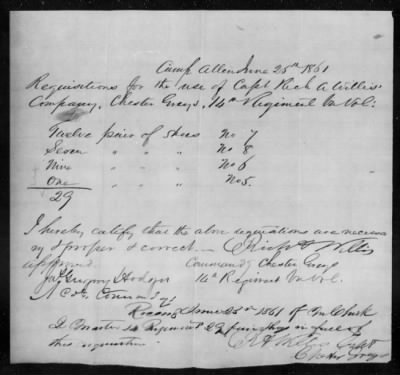 Camp Allen June 25th 1861
Requisitions for the use of Capt Rich A Willis'
Company, Chester Greys, 14th Regiment Va Vol:
Twelve pair of shoes No 7
Seven " " " No 8
Nine " " " No 6
One " " " No 5.
29
I hereby certify that the above requisitions are necessa
ry & proper & correct. Richd A Willis
approved. Commandg Chester Greys
Jas Gregory Hodges 14th Regiment Va Vol.
Col. Commandg
Received June 25th 1861 of
Qr Master 14 Regiment 29 pair shoes in full of
this requisition
R A Willis Capt
Chester Greys